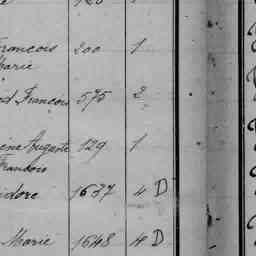 François 200 1
Marie
François 575 2
Auguste 129 1
François
1637 4 D
Marie 1648 4 D